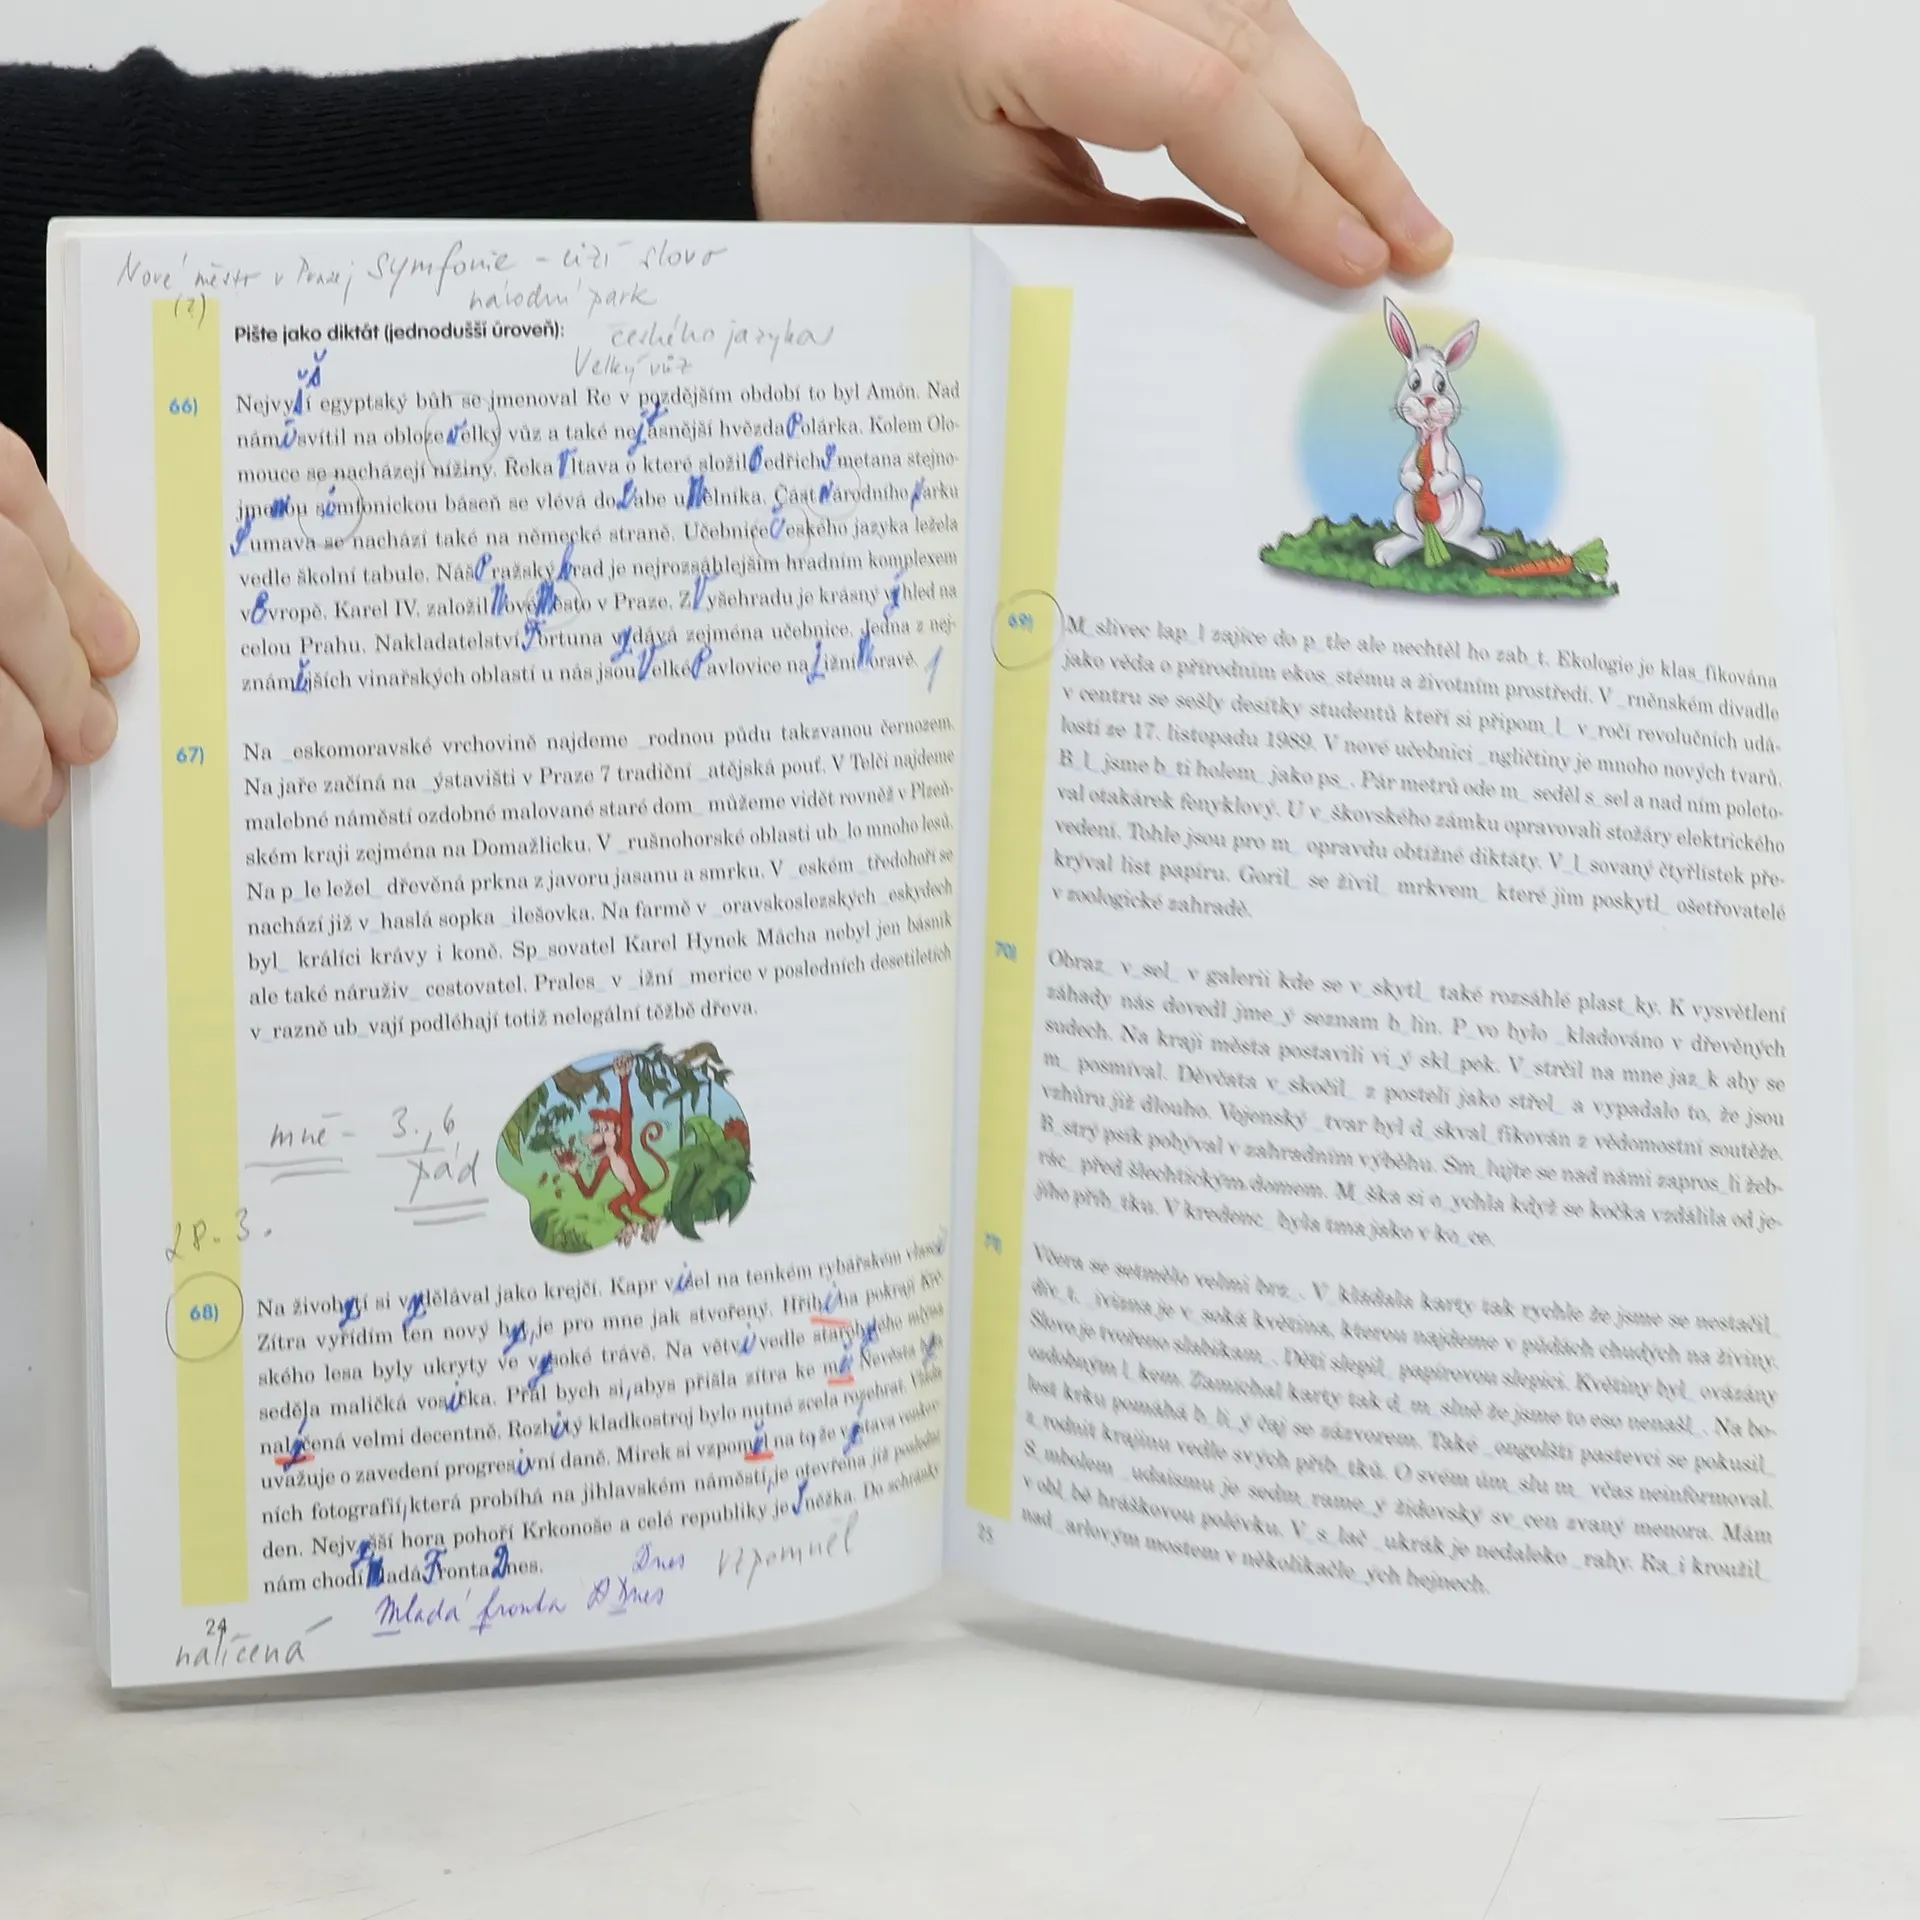 Nové město v Praze, Symfonie - cizí slovo
(?)
národní park
Pište jako diktát (jednodušší úroveň):
českého jazyka
Velký vůz
66)
Nejvyšší egyptský bůh se jmenoval Re v pozdějším období to byl Amón. Nad
námi svítil na obloze Velký vůz a také nejjasnější hvězda Polárka. Kolem Olo-
mouce se nacházejí nížiny. Řeka Vltava o které složil Bedřich Smetana stejno-
jmennou simfonickou báseň se vlévá do Labe u Mělníka. Část Národního parku
Šumava se nachází také na německé straně. Učebnice Českého jazyka ležela
vedle školní tabule. Náš Pražský hrad je nejrozsáhlejším hradním komplexem
v Evropě. Karel IV. založil Nové Město v Praze. Z Vyšehradu je krásný výhled na
celou Prahu. Nakladatelství Fortuna vydává zejména učebnice. Jedna z nej-
známějších vinařských oblastí u nás jsou Velké Pavlovice na Jižní Moravě. 1
67)
Na _eskomoravské vrchovině najdeme _rodnou půdu takzvanou černozem.
Na jaře začíná na _ýstavišti v Praze 7 tradiční _atějská pouť. V Telči najdeme
malebné náměstí ozdobné malované staré dom_ můžeme vidět rovněž v Plzeň-
ském kraji zejména na Domažlicku. V _rušnohorské oblasti ub_lo mnoho lesů.
Na p_le ležel_ dřevěná prkna z javoru jasanu a smrku. V _eském _tředohoří se
nachází již v_haslá sopka _ilešovka. Na farmě v _oravskoslezských _eskydech
byl_ králíci krávy i koně. Sp_sovatel Karel Hynek Mácha nebyl jen básník
ale také náruživ_ cestovatel. Prales_ v _ižní _merice v posledních desetiletích
v_razně ub_vají podléhají totiž nelegální těžbě dřeva.
mně - 3., 6
pád
28. 3.
68)
Na živobytí si vydělával jako krejčí. Kapr visel na tenkém rybářském vlasci.
Zítra vyřídím ten nový byt, je pro mne jak stvořený. Hřibi na pokraji Kré-
ského lesa byly ukryty ve vysoké trávě. Na větvi vedle starobylého mlýna
seděla maličká vosička. Přál bych si, abys přišla zítra ke mě. Nevěsta byla
nalyčená velmi decentně. Rozbitý kladkostroj bylo nutné zcela rozebrat. Vláda
uvažuje o zavedení progresivní daně. Mirek si vzpoměl na to že výstava venkov-
ních fotografií, která probíhá na jihlavském náměstí, je otevřena již poslední
den. Nejvyšší hora pohoří Krkonoše a celé republiky je Sněžka. Do schránky
nám chodí Mladá Fronta Dnes.
Dnes vzpomněl
Mladá fronta Dnes
24
nalíčená
69)
M_slivec lap_l zajíce do p_tle ale nechtěl ho zab_t. Ekologie je klas_fikována
jako věda o přírodním ekos_stému a životním prostředí. V _rněnském divadle
v centru se sešly desítky studentů kteří si připom_l_ v_ročí revolučních udá-
lostí ze 17. listopadu 1989. V nové učebnici _ngličtiny je mnoho nových tvarů.
B_l_ jsme b_ti holem_ jako ps_. Pár metrů ode m_ seděl s_sel a nad ním poleto-
val otakárek fenyklový. U v_škovského zámku opravovali stožáry elektrického
vedení. Tohle jsou pro m_ opravdu obtížné diktáty. V_l_sovaný čtyřlístek pře-
krýval list papíru. Goril_ se živil_ mrkvem_ které jim poskytl_ ošetřovatelé
v zoologické zahradě.
70)
Obraz_ v_sel_ v galerii kde se v_skytl_ také rozsáhlé plast_ky. K vysvětlení
záhady nás dovedl jme_ý seznam b_lin. P_vo bylo _kladováno v dřevěných
sudech. Na kraji města postavili vi_ý skl_pek. V_strčil na mne jaz_k aby se
m_ posmíval. Děvčata v_skočil_ z postelí jako střel_ a vypadalo to, že jsou
vzhůru již dlouho. Vojenský _tvar byl d_skval_fikován z vědomostní soutěže.
B_strý psík pobýval v zahradním výběhu. Sm_lujte se nad námi zapros_li žeb-
rác_ před šlechtickým domem. M_ška si o_ychla když se kočka vzdálila od je-
jího příb_tku. V kredenc_ byla tma jako v ko_ce.
71)
Včera se setmělo velmi brz_. V_kládala karty tak rychle že jsme se nestačil_
div_t. _ivizna je v_soká květina, kterou najdeme v půdách chudých na živiny.
Slovo je tvořeno slabikam_. Děti slepil_ papírovou slepici. Květiny byl_ ovázány
ozdobným l_kem. Zamíchal karty tak d_m_slně že jsme to eso nenašl_. Na bo-
lest krku pomáhá b_li_ý čaj se zázvorem. Také _ongolští pastevci se pokusil_
z_rodnit krajinu vedle svých příb_tků. O svém úm_slu m_ včas neinformoval.
S_mbolem _udaismu je sedm_rame_ý židovský sv_cen zvaný menora. Mám
v obl_bě hráškovou polévku. V_s_lač _ukrák je nedaleko _rahy. Ra_i kroužil_
nad _arlovým mostem v několikačle_ých hejnech.
25